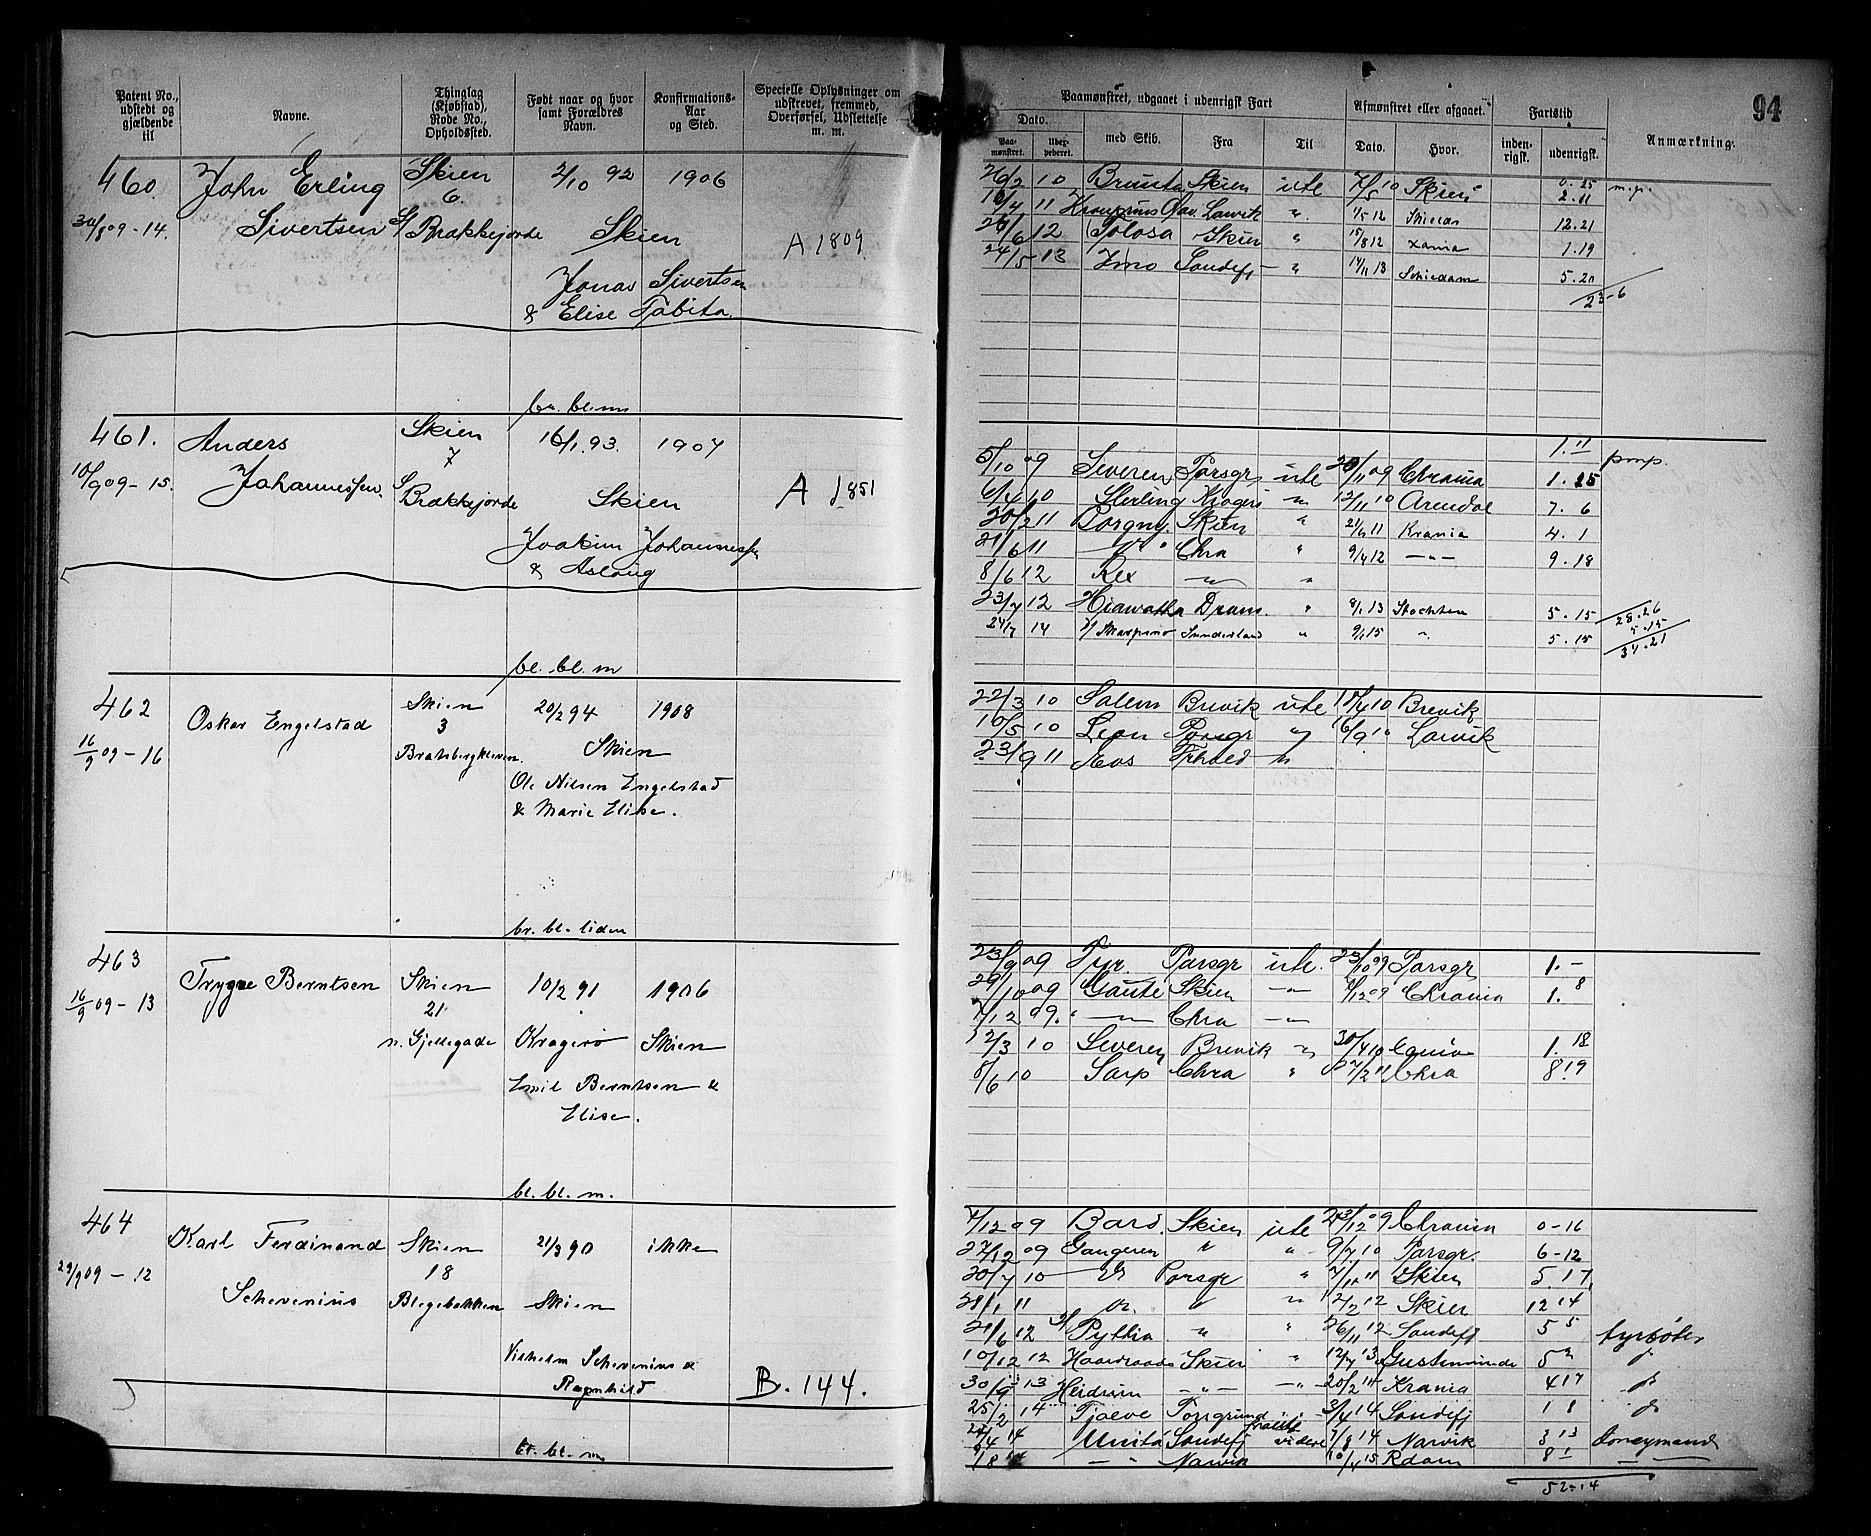 94
Patent No., udstedt og gjældende til
Navne.
Thinglag (Kjøbstad), Rode No., Opholdssted.
Født naar og hvor samt Forældres Navn.
Konfirmations-Aar og Sted.
Specielle Oplysninger om udskrevet, fremmed, Overførsel, Udslettelse m. m.
Paamønstret, udgaaet i udenrigsk Fart
Afmønstret eller afgaaet.
Fartstid
Anmærkning.
Dato.
Paamønstret.
med Skib.
Fra
Til
Dato.
Hvor.
indenrigsk.
udenrigsk.
460 John Erling Skien 2/10 92 1906
6
30/8 09-14. Sivertsen Brakkejorde Skien A 1809
Jonas Sivertsen
& Elise Tabita
26/2 10 Skien ute 7/5 10 Skien 0.25
2.11
11 Larvik " 1/5 12 12.21
12 Tolosa Skien " 15/8 12 1.19
24/5 13 Sandefj " 14/11 13 Schiedam 5.20
23-6
br. bl. m
461. Anders Skien 16/1 93 1907
7
10/9 09-15. Johannessen Brakkejorde Skien A 1851
Joakim Johannessen
& Aslaug
1.11
5/10 09 Severen Porsgr ute 20/11 09 Chrania 1.25 pmp.
6/4 10 Sterling Kragerø " 12/11 10 Arendal 7.6
20/2 11 Borgny Skien " 21/6 11 Krania 4.1
21/6 11 " Chra " 9/4 12 — " — 9.18
8/6 12 Rex " "
23/7 12 Hiawatha Dram " 8/1 13 5.15 28.26
5.15
24/7 14 Sunderland " 9/1 15 " 5.15 34.21
bl. bl. m
462 Oskar Engelstad Skien 20/2 94 1908
3
16/9 09-16 Bratsbergkleven. Skien
Ole Nilsen Engelstad
& Marie Elise.
22/3 10 Salem Brevik ute 10 Brevik
10/5 10 Leon Porsgr " 6/9 10 Larvik
23/9 11 Aos "
br. bl. liden
463 Trygve Berntsen Skien 10/2 91 1906
21
16/9 09-13 n. Gjellegade Kragerø Skien
Emil Berntsen &
Elise.
23/9 09 Tyr. Porsgr ute. 23/10 09 Porsgr 1.-
29/10 09 Gaute Skien " 12 09 Chrania 1.8
7/12 09. " Chra "
12/3 10 Severen Brevik " 30/4 10 1.18
8/6 10 Sarp Chra " 27/2 11 Chra 8.19
bl. bl. m.
464 Karl Ferdinand Skien 21/3 90 ikke
18
29/9 09-12 Schevenius Blegebakken Skien
Vilhelm Schevenius &
Ragnhild B. 144.
7/12 09 Bard Skien ute 23/12 09 Chrania 0-16
27/12 09 Gangeren " " 9/7 10 Porsgr. 6-12
20/7 10 " Porsgr " 7/1 11 Skien 5 17
21/1 11 " " " 2/2 12 Skien 12 14
21/6 12 Pythia " " 26/11 12 Sandefj 5 5 fyrbøter
10/12 12 Haardraade Skien " 12/7 13
30/9 13 Heidrun — " — — " — 20/2 14 Krania 4 17
25/2 14 Tjølve Porsgrund 3/4 14 Sandefj 1 8
24/4 14 Unita Sandefj videre 7/8 14 Narvik 3 13 donkeymand
/8 14 — " Narvik 10/4 15 Rdam 8 1
br. bl. m
52-14